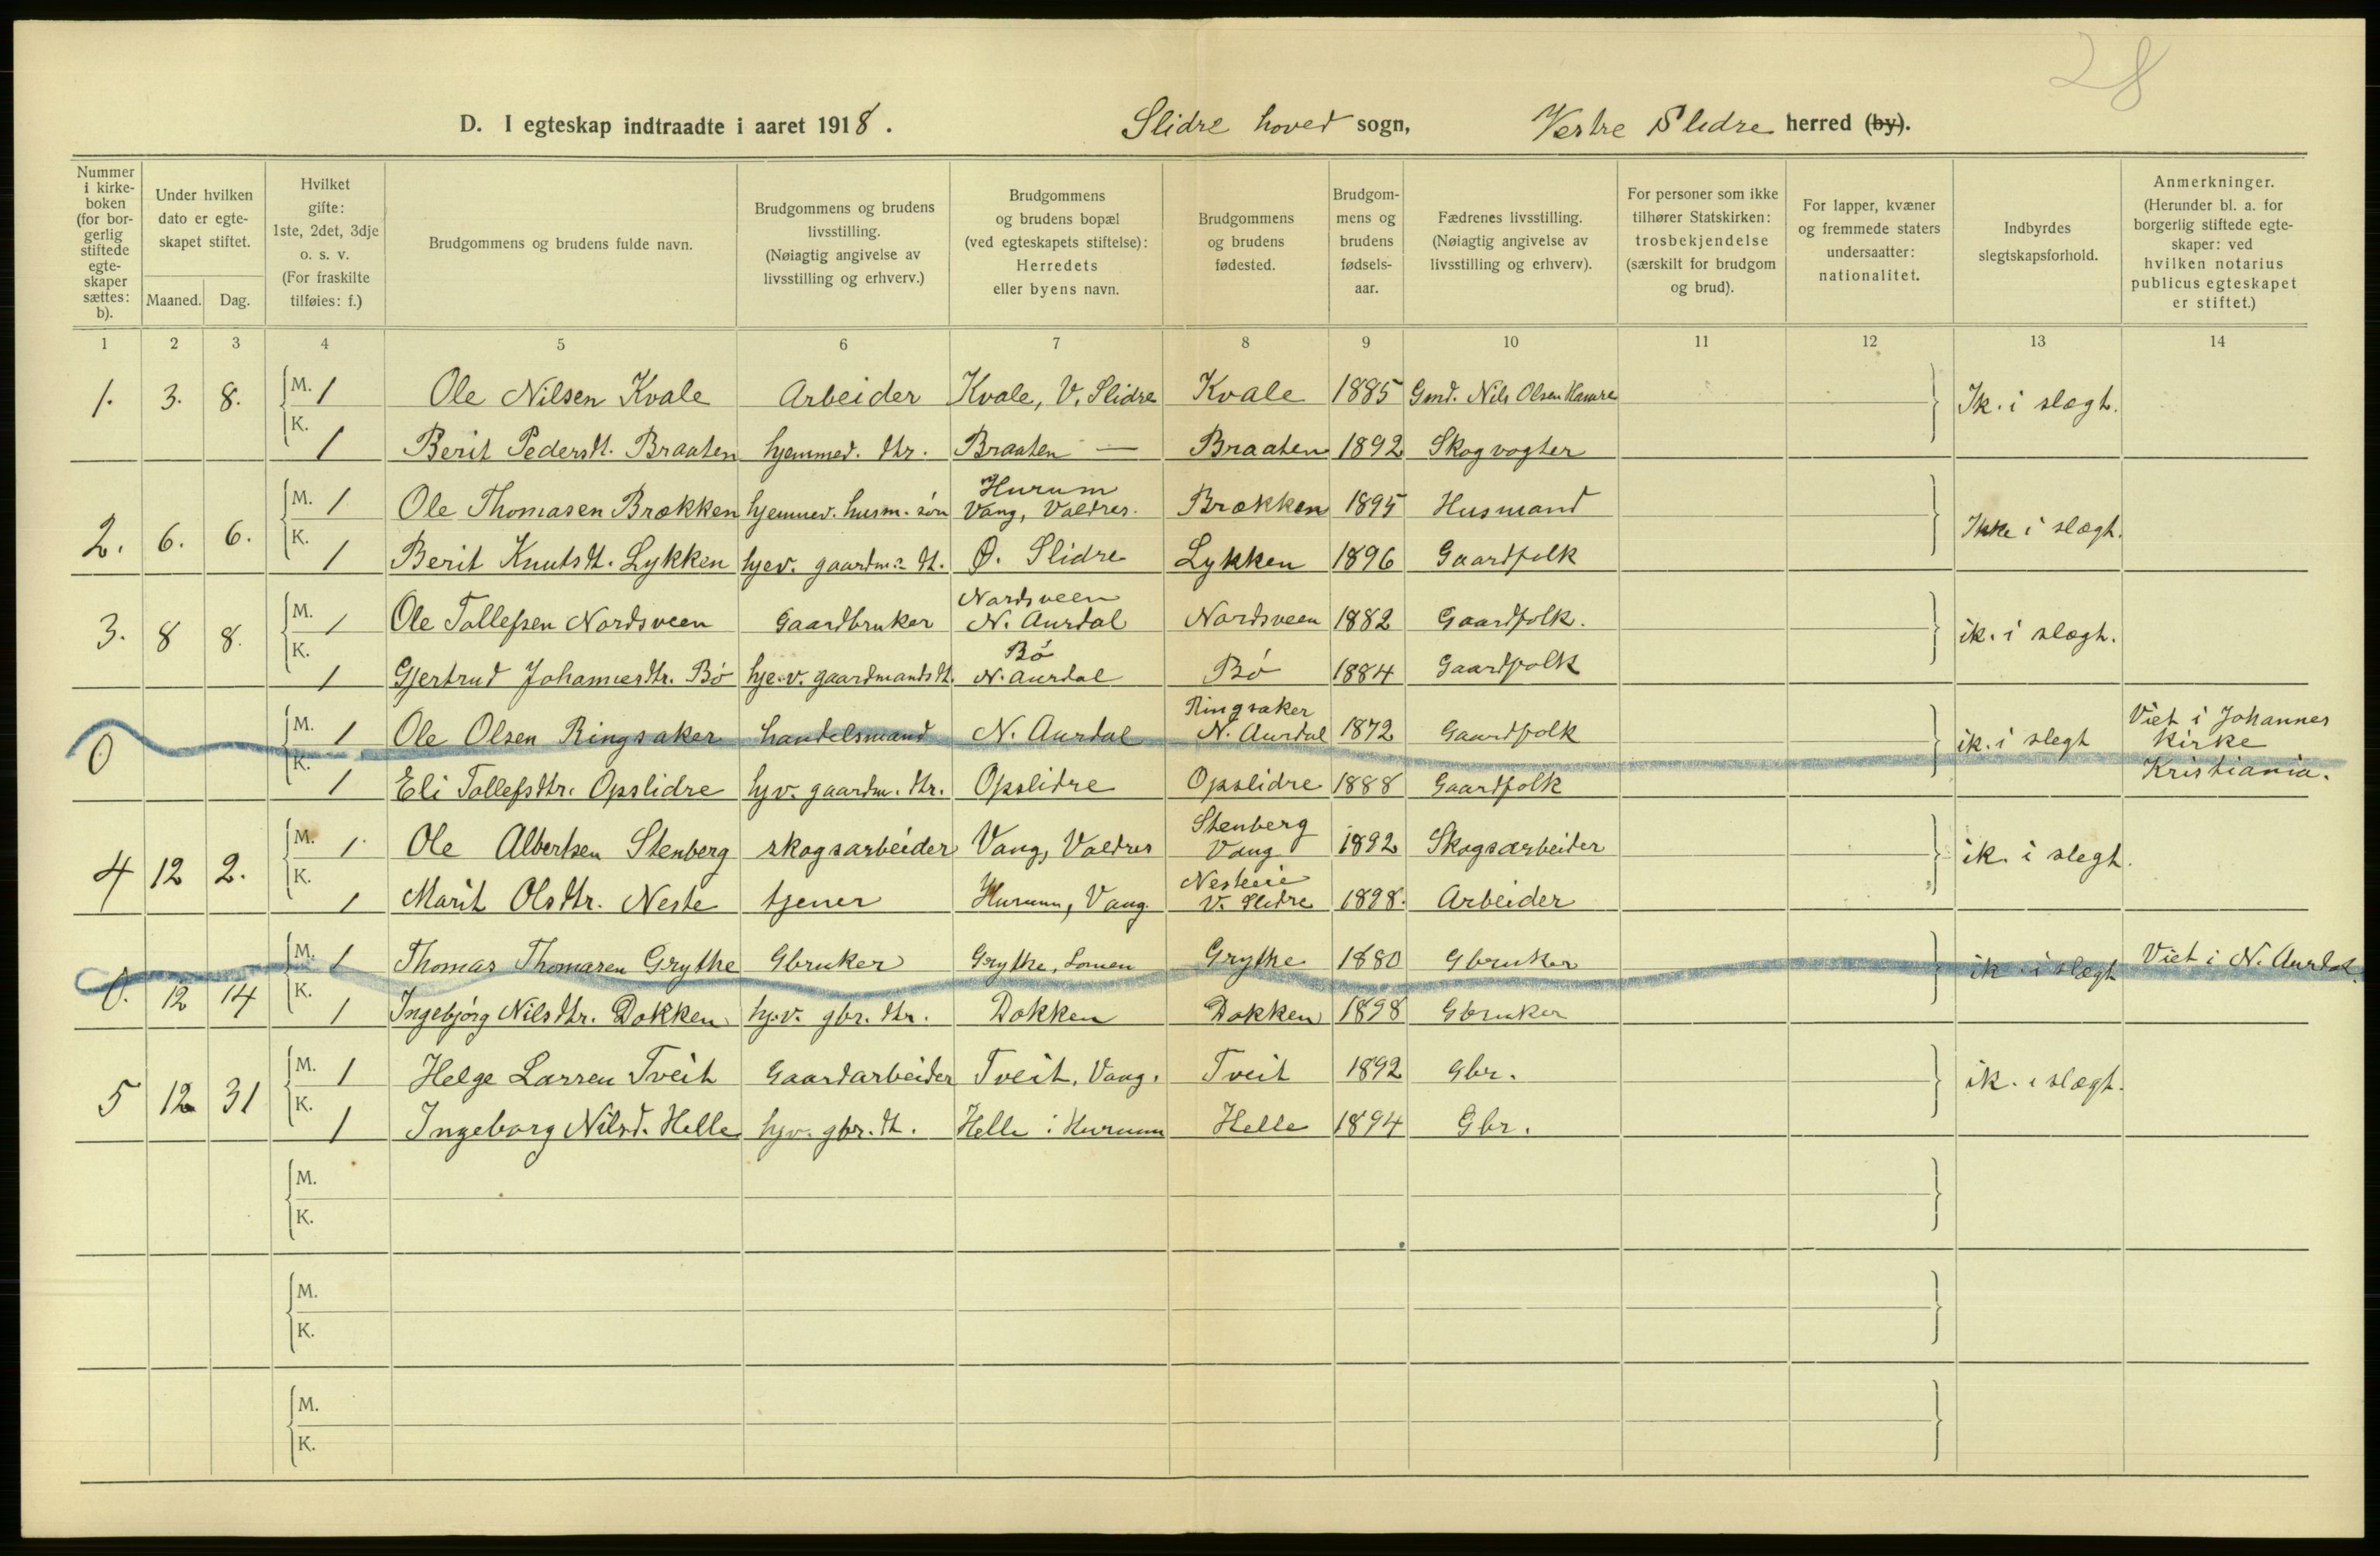 28
D. I egteskap indtraadte i aaret 1918. Slidre hoved sogn, Vestre Slidre herred (by).
Nummer i kirke-boken (for bor-gerlig stiftede egte-skaper sættes: b).
Under hvilken dato er egte-skapet stiftet.
Maaned. Dag.
Hvilket gifte: 1ste, 2det, 3dje o. s. v. (For fraskilte tilføies: f.)
Brudgommens og brudens fulde navn.
Brudgommens og brudens livsstilling. (Nøiagtig angivelse av livsstilling og erhverv.)
Brudgommens og brudens bopæl (ved egteskapets stiftelse): Herredets eller byens navn.
Brudgommens og brudens fødested.
Brudgom-mens og brudens fødsels-aar.
Fædrenes livsstilling. (Nøiagtig angivelse av livsstilling og erhverv).
For personer som ikke tilhører Statskirken: trosbekjendelse (særskilt for brudgom og brud).
For lapper, kvæner og fremmede staters undersaatter: nationalitet.
Indbyrdes slegtskapsforhold.
Anmerkninger. (Herunder bl. a. for borgerlig stiftede egte-skaper: ved hvilken notarius publicus egteskapet er stiftet.)
1 2 3 4 5 6 7 8 9 10 11 12 13 14
1. 3. 8. M. 1 Ole Nilsen Kvale Arbeider Kvale, V. Slidre Kvale 1885 Gmd. Nils Olsen Hamre Ik. i slægt.
K. 1 Berit Pedersdt. Braaten hjemmev. dtr. Braaten — Braaten 1892 Skogvogter
2. 6. 6. M. 1 Ole Thomasen Brækken hjemmev. husm. søn Hurum Vang, Valdres. Brækken 1895 Husmand Ikke i slægt.
K. 1 Berit Knutsdt. Lykken hjev. gaardm. dt. Ø. Slidre Lykken 1896 Gaardfolk
3. 8 8. M. 1 Ole Tollefsen Nordsveen Gaardbruker Nordsveen N. Aurdal Nordsveen 1882 Gaardfolk. ik. i slægt.
K. 1 Gjertrud Johannesdtr. Bø hje.v. gaardmandsdt. Bø N. Aurdal Bø 1884 Gaardfolk
0 M. 1 Ole Olsen Ringsaker handelsmand N. Aurdal Ringsaker N. Aurdal 1872 Gaardfolk ik. i slegt Viet i Johannes Kirke Kristiania.
K. 1 Eli Tollefsdtr. Opslidre hjv. gaardm. dtr. Opslidre Opslidre 1888 Gaardfolk
4 12 2. M. 1 Ole Albertsen Stenberg skogsarbeider Vang, Valdres Stenberg Vang 1892 Skogsarbeider ik. i slegt.
K. 1 Marit Olsdtr. Neste tjener Hurum, Vang. Nesteie V. Slidre 1898. Arbeider
0. 12 14 M. 1 Thomas Thomasen Grythe Gbruker Grythe, Lomen Grythe 1880 Gbruker ik. i slægt Viet i N. Aurdal.
K. 1 Ingebjørg Nilsdtr. Dokken hj.v. gbr. dtr. Dokken Dokken 1898 Gbruker
5 12 31 M. 1 Helge Larsen Tveit Gaardarbeider Tveit, Vang. Tveit 1892 Gbr. ik. i slægt.
K. 1 Ingeborg Nilsd. Helle hjv. gbr. dt. Helle i Hurum Helle 1894 Gbr.
M.
K.
M.
K.
M.
K.